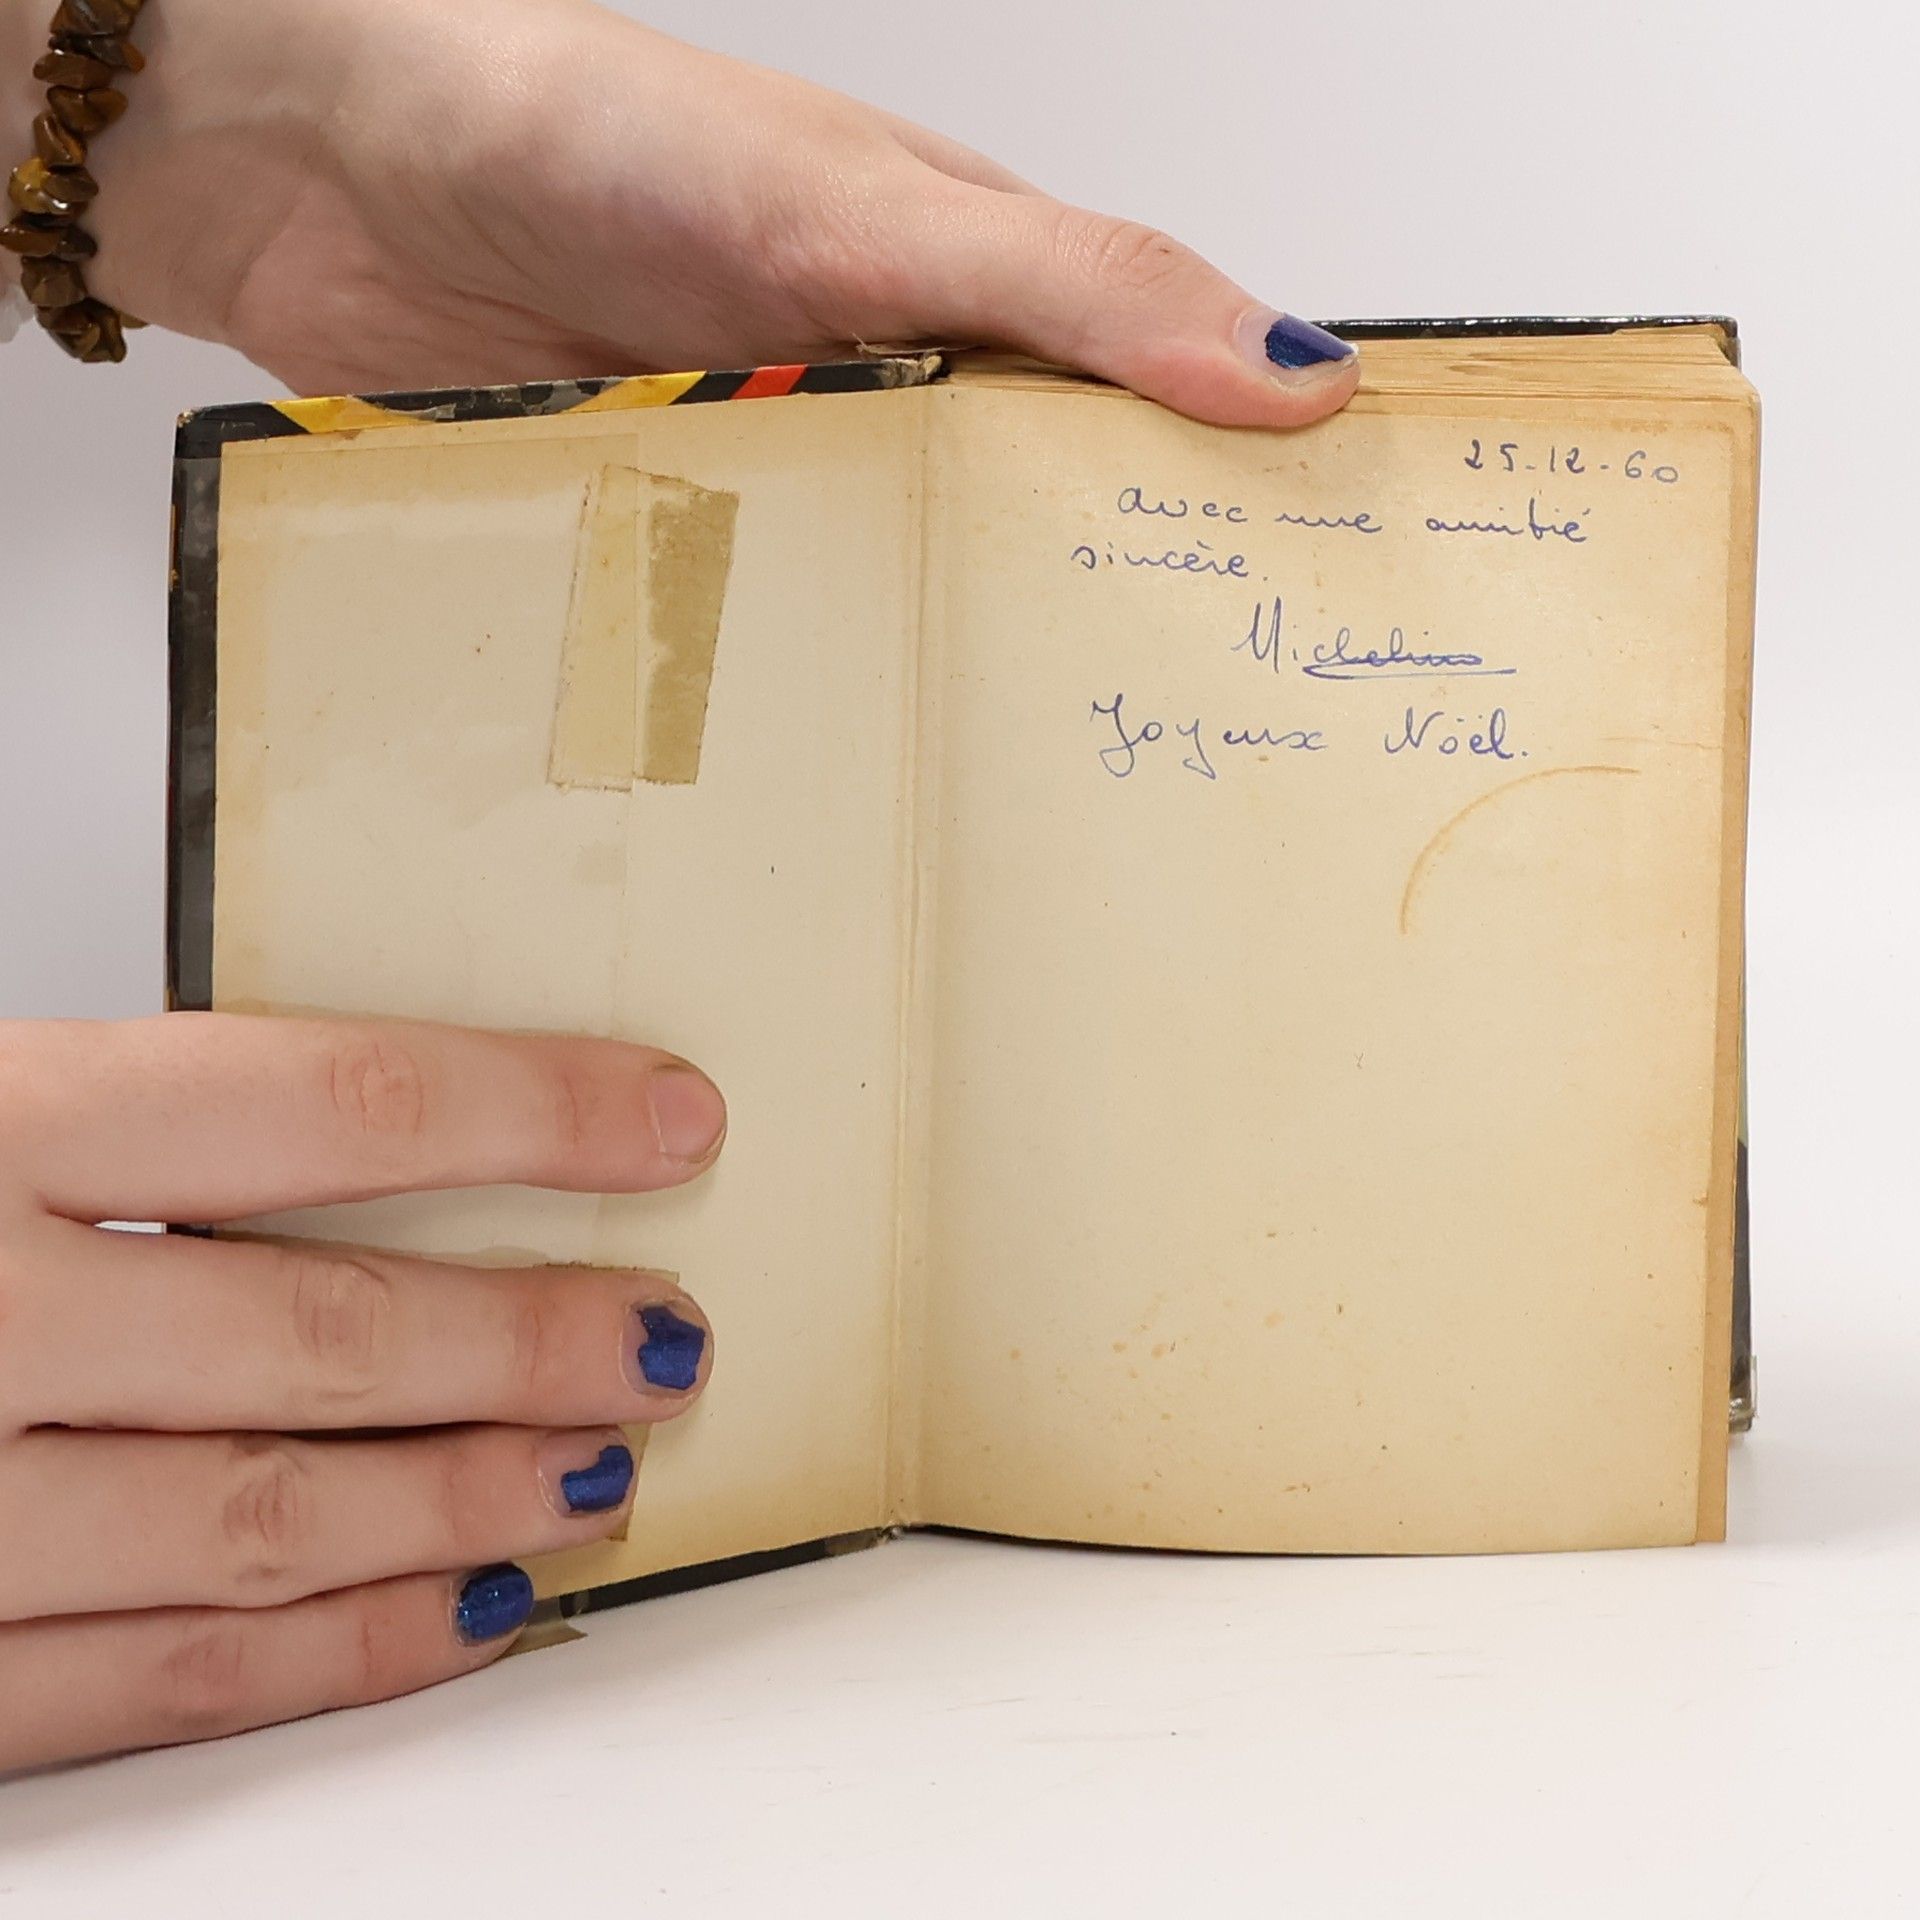 25-12-60
avec une amitié
sincère.
Micheline
Joyeux Nöël.